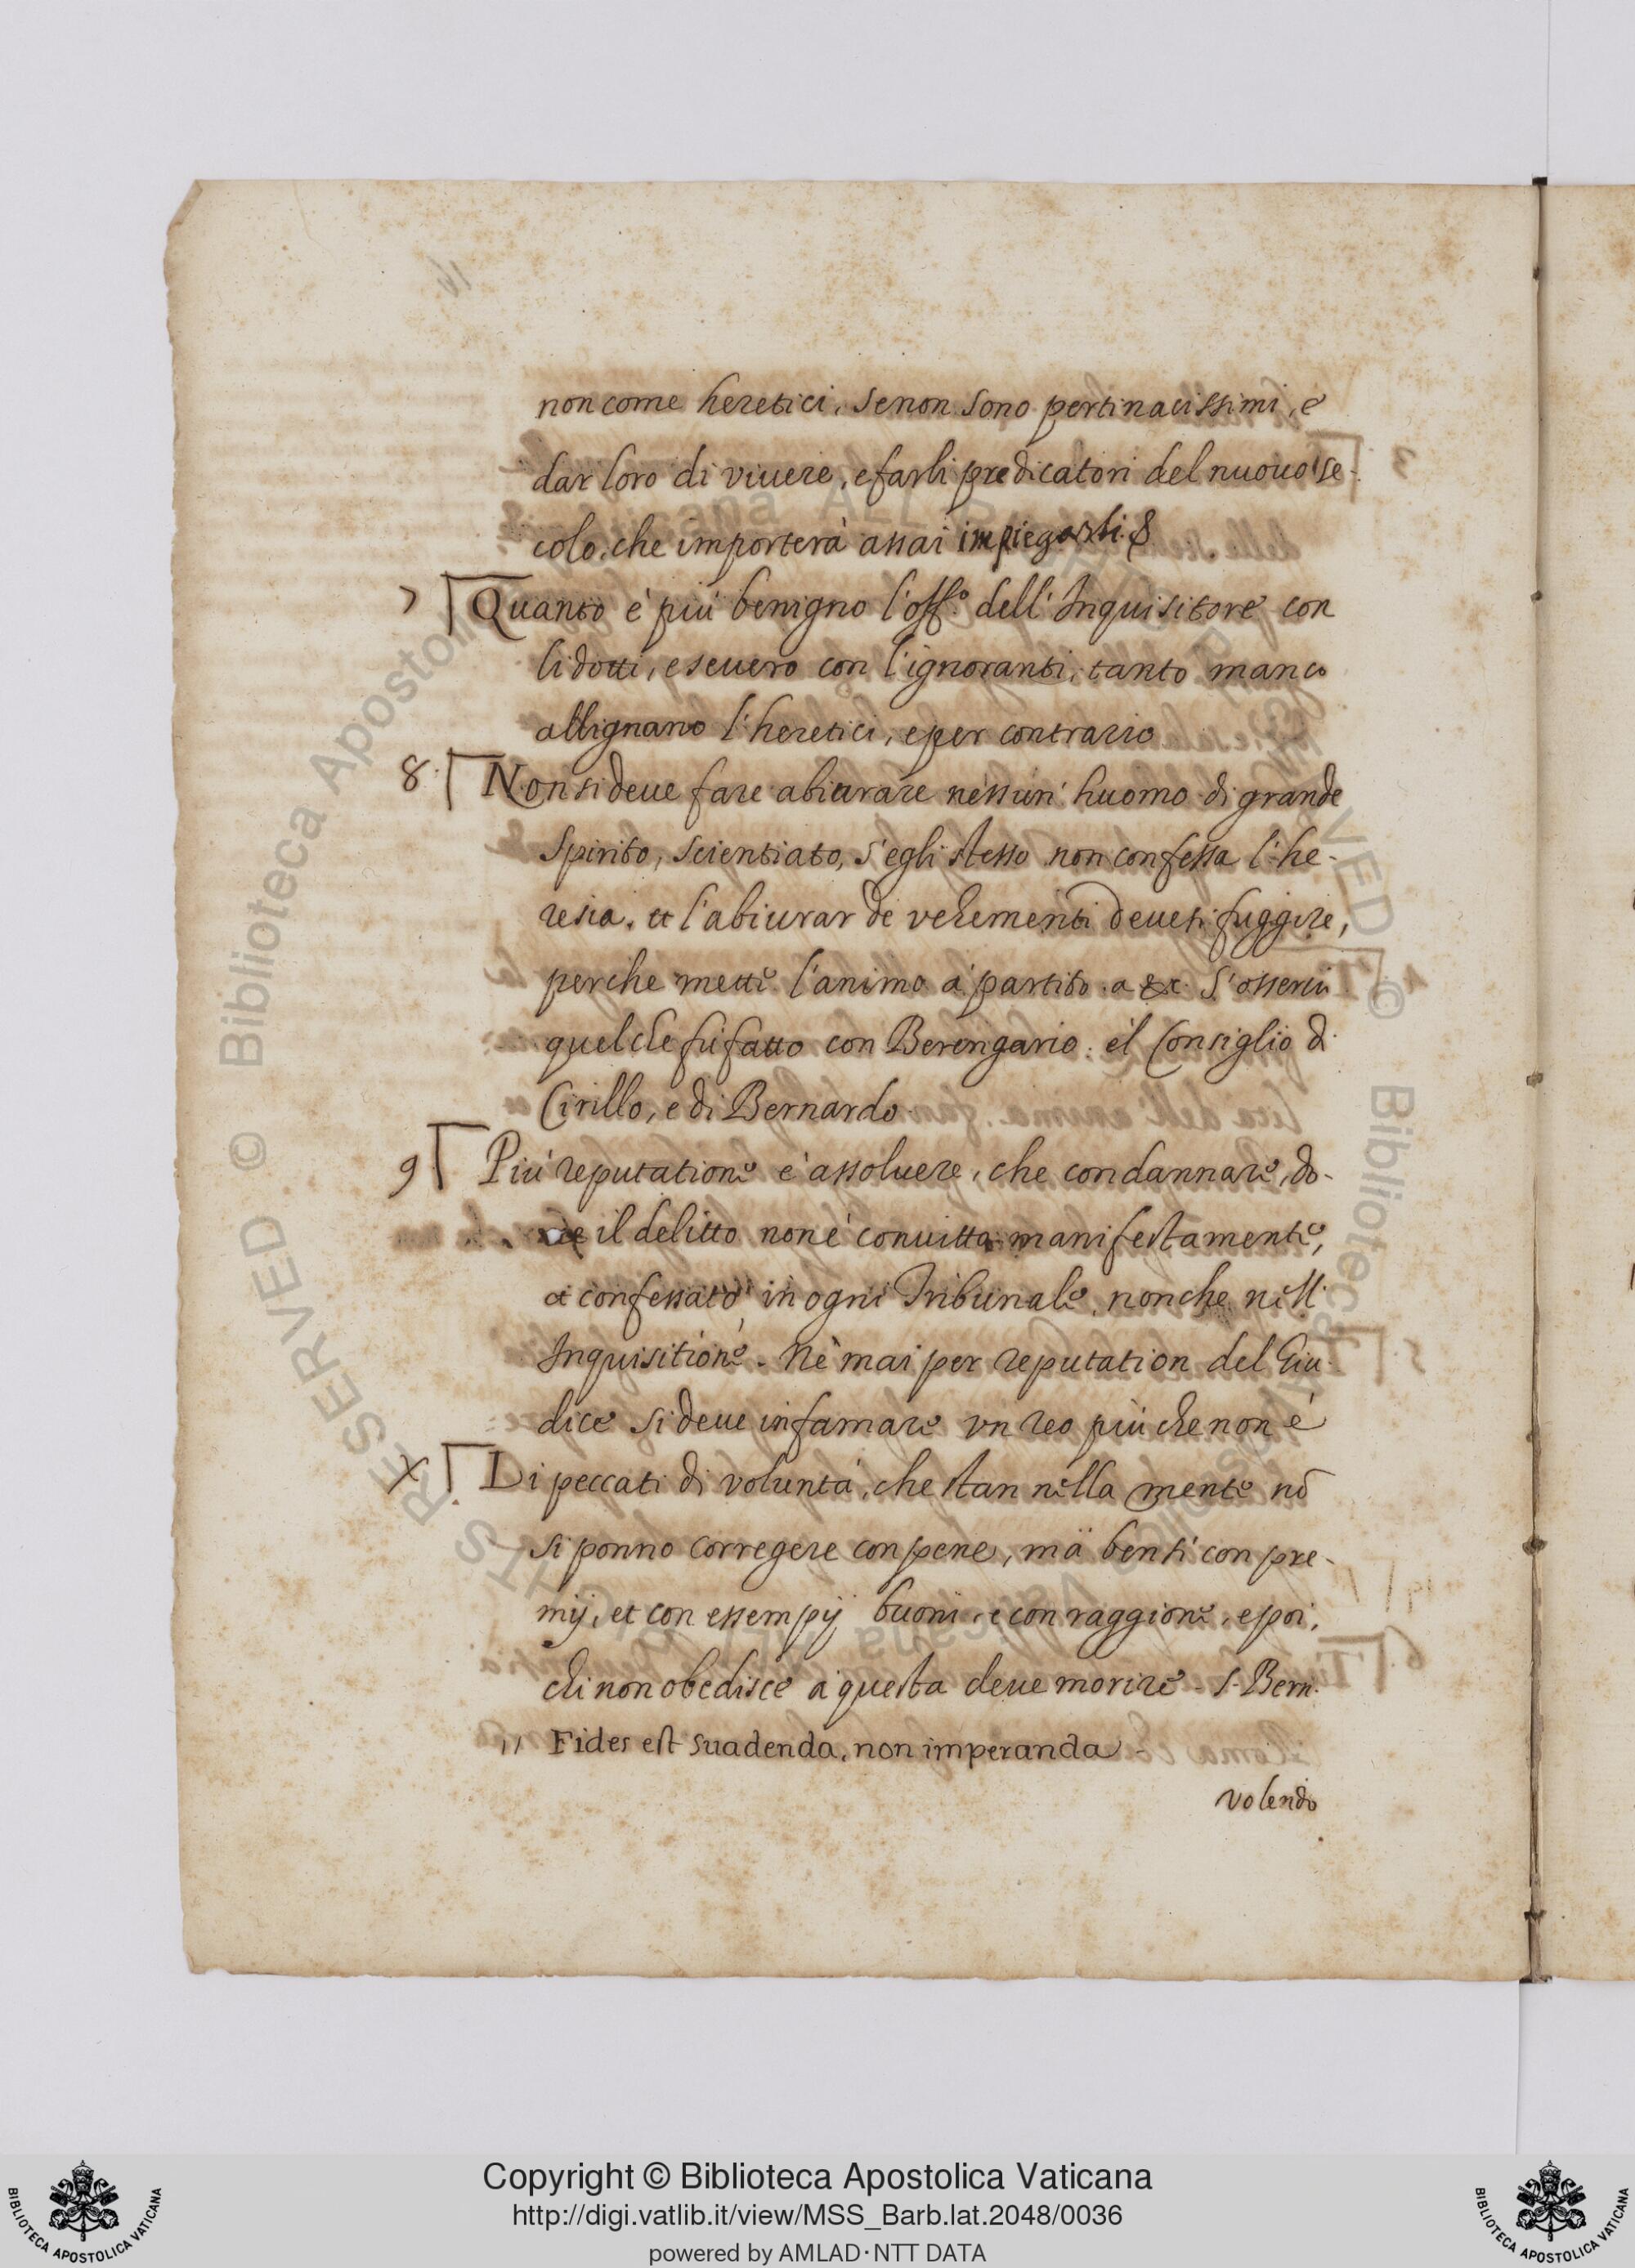 non come heretici, se non sono pertinacissimi, e
dar loro di viuere, e farli predicatori del nuouo se-
colo, che importerà assai impiegarli.
7 Quanto è più benigno l'off.o dell'Inquisitore con
li dotti, e seuero con l'ignoranti, tanto manco
allignano l'heretici, e per contrario
8. Non si deue fare abiurare nessun' huomo di grande
spirito, scientiato, s'egli stesso non confessa l'he-
resia. et l'abiurar de vehementi deuesi fuggire,
perche mette l'animo à partito. a &c. S'osserui
quel che fù fatto con Berengario. él Consiglio di
Cirillo, e di Bernardo.
9 Più reputatione è assoluere, che condannare, do-
ue il delitto non è conuitto manifestamente,
et confessato, in ogni Tribunale, nonche nell'
Inquisitione. Nè mai per reputation del Giu-
dice si deue infamare vn reo più che non è
X Li peccati di voluntà, che stan nella mente nō
si ponno corregere con pene, mà bensi con pre-
mij, et con essempij buoni, e con raggione, e poi,
chi non obedisce à questa deue morire. S. Bern.
,, Fides est suadenda, non imperanda.
volendo
Copyright © Biblioteca Apostolica Vaticana
http://digi.vatlib.it/view/MSS_Barb.lat.2048/0036
powered by AMLAD·NTT DATA
BIBLIOTECA APOSTOLICA VATICANA
BIBLIOTECA APOSTOLICA VATICANA